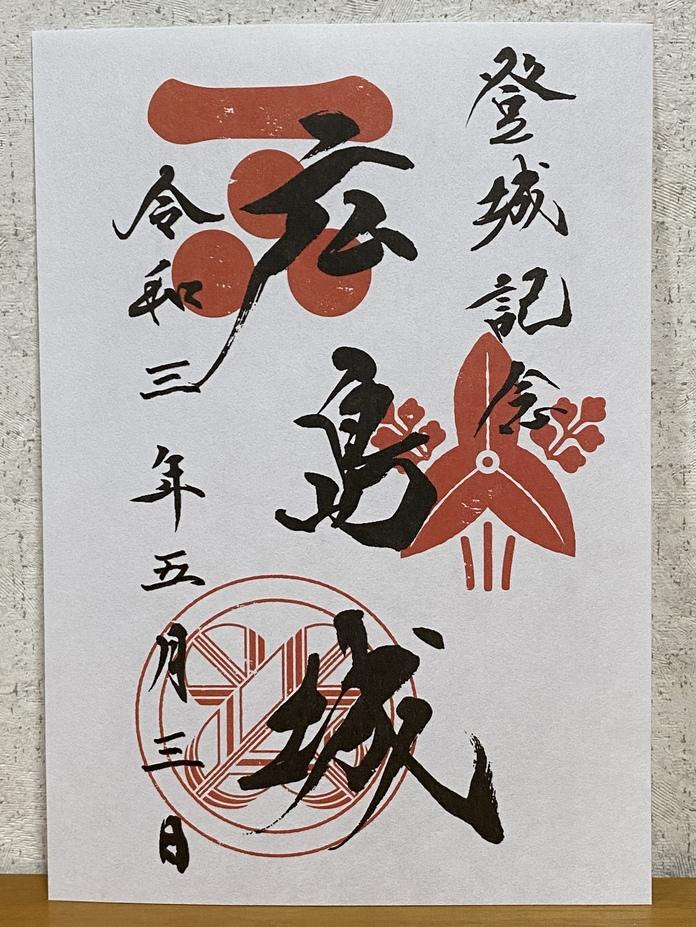 登城記念
広島城
令和三年五月三日